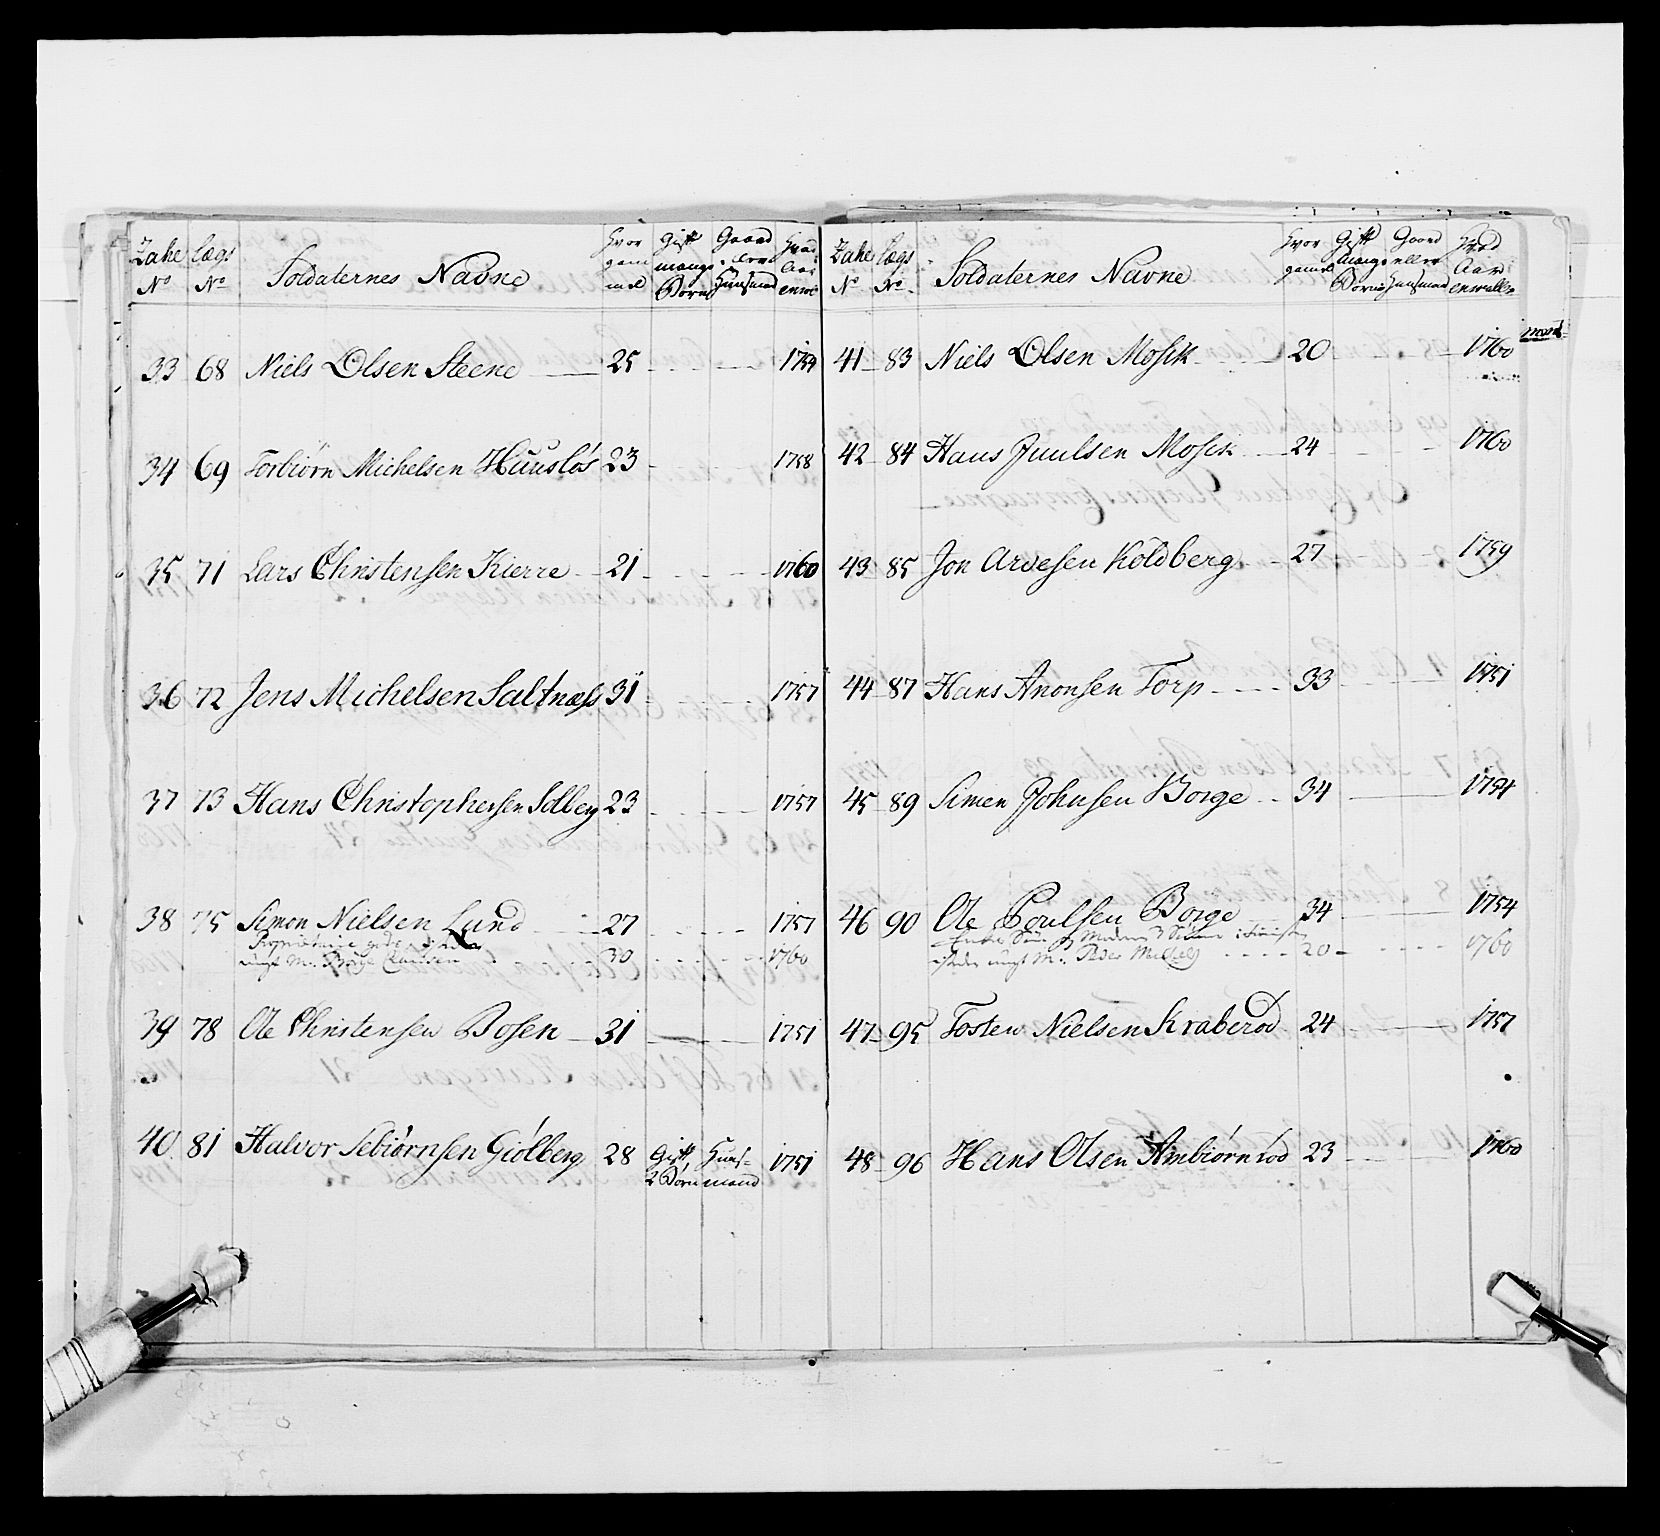 Zahe lægs Soldaternes Navne Hvor gam mel Gift mange Børn Gaard Huusmand Hvad Aar
No No
33 68 Niels Olsen Steene 25
34 69 Torbiörn Michelsen Huuslös 23 1758
35 71 Lars Christensen Kierre 21 1760
36 72 Jens Michelsen Saltnæss 31 1757
37 73 Hans Christophersen Solberg 23 1757
38 75 Simon Nielsen Lund 27 1757
30 1760
39 78 Ole Christensen Bosen 31 1751
40 81 Halvor Sebiörnsen Giölberg 28 Gift Huus- 1751
2 Börn mand
Zahe lægs Soldaternes Navne Hvor gamel Gift mange Börn Gaard eller Huusmand Hvad Aar enrollert
No No
mand
41 83 Niels Olsen Mosik 20 1760
42 84 Hans Juulsen Mosik 24 1760
43 85 Jon Arvesen Koldberg 27 1759
44 87 Hans Anonsen Torp 33 1751
45 89 Simen Johnsen Borge 34 1754
46 90 Ole Poulsen Borge 34 1754
20 1760
47 95 Tosten Nielsen Kraberöd 24 1757
48 96 Hans Olsen Ambiörnröd 23 1760